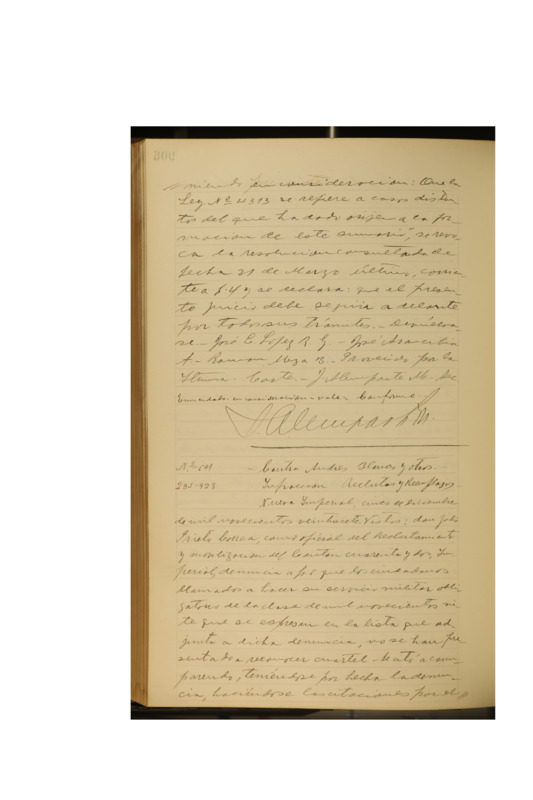 niendo en consideracion: Que la
Ley Nº 4393 se refiere a casos distin-
tos del que ha dado origen a la for-
macion de este sumario", se revo-
ca la resolucion consultada de
fecha 21 de Marzo último, corrien-
te a f. 4 y se declara: que el presen-
te juicio debe seguir adelante
por todos sus trámites.- Devuélva-
se - José E. López R. G. - José Aracibia
A - Ramon Meza B. - Proveido por la
Iltma. Corte - J. Alemparte M. Sec
Enmendado: en consideracion - vale - Conforme
J. Alemparte M.
Nº
Contra Andres Olanos y otros
Infraccion Reclutas y Reemplazos.
Nueva Imperial, cinco de Diciembre
de mil novecientos veintisiete. Vistos: don Julio
Prieto Correa, como oficial del Reclutamiento
y movilizacion del Canton cuarenta y dos, Im-
perial, denuncia a f. 1 que los ciudadanos
llamados a hacer su servicio militar obli-
gatorio de la clase de mil novecientos sie-
te que se espresan en la lista que ad-
junta a dicha denuncia, no se han pre
sentado a reconocer cuartel. Se citó a com-
parendo, teniéndose por hecha la denun-
cia, haciéndose las citaciones por el